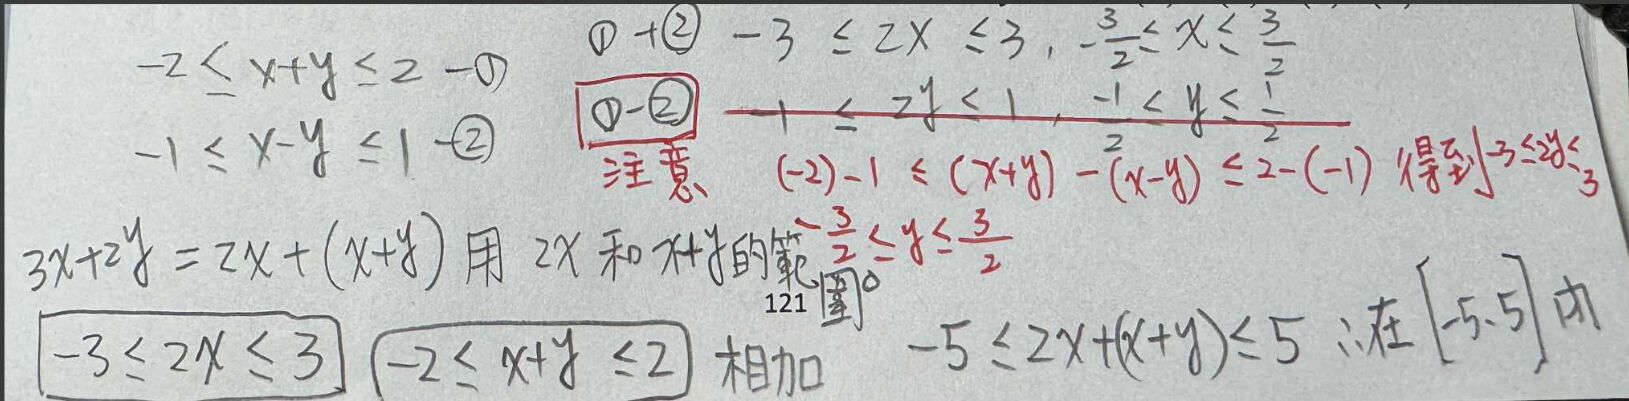 -2 ≤ x+y ≤ 2 -①
-1 ≤ x-y ≤ 1 -②
①+② -3 ≤ 2x ≤ 3, -3/2 ≤ x ≤ 3/2
①-② -1 ≤ 2y ≤ 1, -1/2 ≤ y ≤ 1/2
注意 (-2)-1 ≤ (x+y)-(x-y) ≤ 2-(-1) 得到 -3 ≤ 2y ≤ 3
-3/2 ≤ y ≤ 3/2
3x+2y = 2x+(x+y) 用 2x 和 x+y的範圍。
121
-3 ≤ 2x ≤ 3 -2 ≤ x+y ≤ 2 相加 -5 ≤ 2x+(x+y) ≤ 5 ∴在[-5、5]內